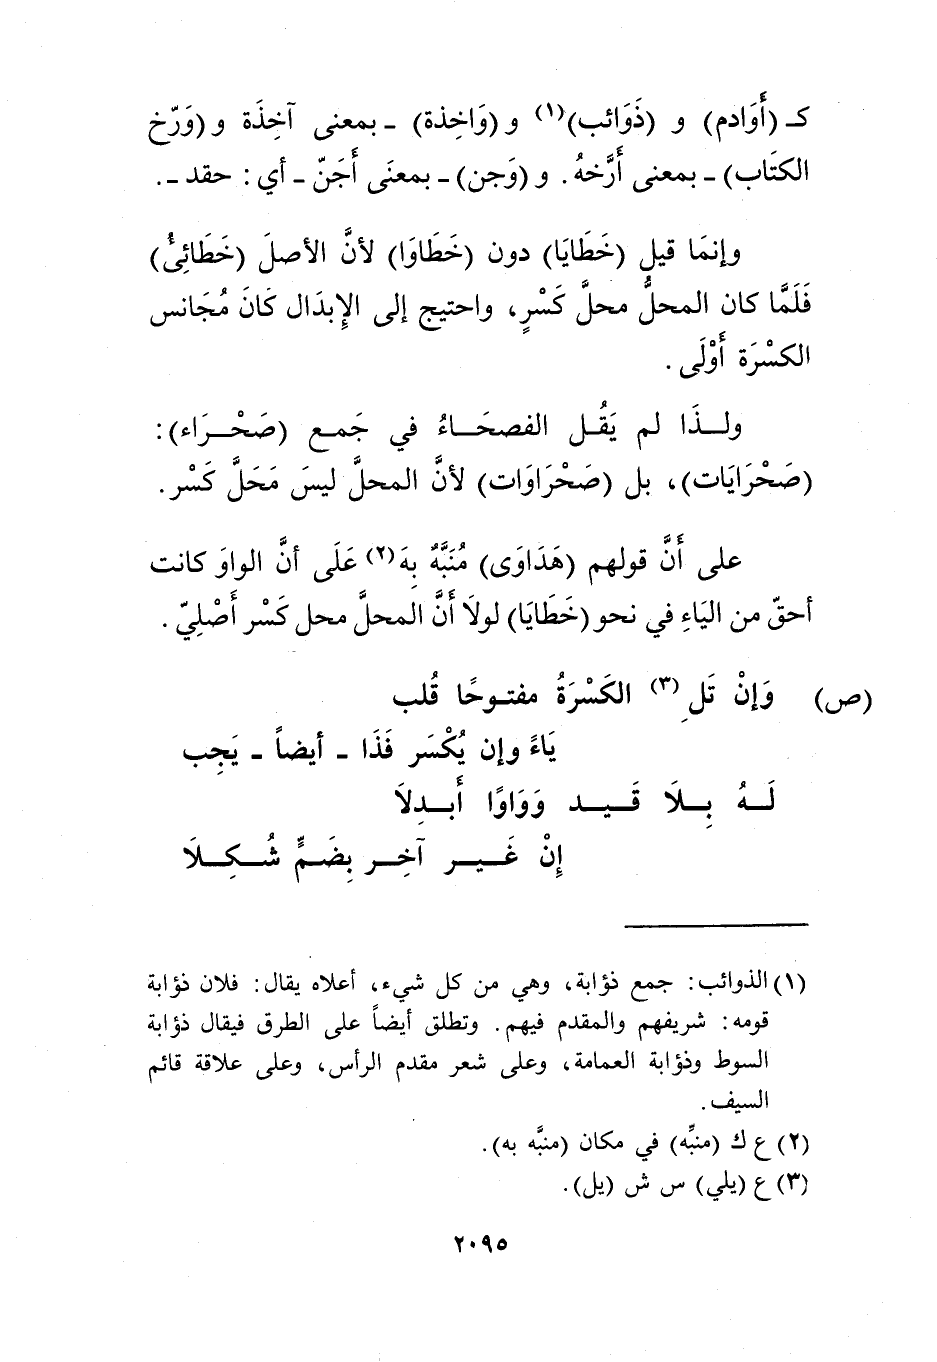 كـ (أَوَادم) و (ذَوَائب)(١) و (وَاخِذة) ـ بمعنى آخِذَة و (وَرّخ
الكتَاب) ـ بمعنى أَرَّخهُ. و (وَجن) ـ بمعنَى أَجَنّ ـ أي: حقد ـ.
وإنمَا قيل (خَطَايَا) دون (خَطَاوَا) لأنَّ الأصلَ (خَطَائِئُ)
فَلَمَّا كان المحلُّ محلَّ كَسْرٍ، واحتيج إلى الإِبدَال كَانَ مُجَانس
الكسْرَة أَوْلَى.
ولـذَا لم يَقُـل الفصحَـاءُ في جَمـع (صَحْـرَاء):
(صَحْرَايَات)، بل (صَحْرَاوَات) لأنَّ المحلَّ ليسَ مَحَلَّ كَسْر.
على أَنَّ قولهم (هَدَاوَى) مُنَبَّهٌ بِهَ(٢) عَلَى أنَّ الواوَ كانت
أحقّ من اليَاءِ في نحو (خَطَايَا) لولَا أَنَّ المحلَّ محل كَسْر أَصْلِيّ.
(ص) وَإِنْ تَلِ(٣) الكَسْرَةُ مفتـوحًا قُلب
يَاءً وإن يُكْسَر فَذَا ـ أيضاً ـ يَجِب
لَـهُ بِـلَا قَـيـد وَوَاوًا أَبـدِلَا
إِنْ غَـيـر آخِـر بِضَـمٍّ شُـكِـلَا
(١) الذوائب: جمع ذؤابة، وهي من كل شيء، أعلاه يقال: فلان ذؤابة
قومه: شريفهم والمقدم فيهم. وتطلق أيضاً على الطرق فيقال ذؤابة
السوط وذؤابة العمامة، وعلى شعر مقدم الرأس، وعلى علاقة قائم
السيف.
(٢) ع ك (منبِّه) في مكان (منبَّه به).
(٣) ع (يلي) س ش (يل).
٢٠٩٥